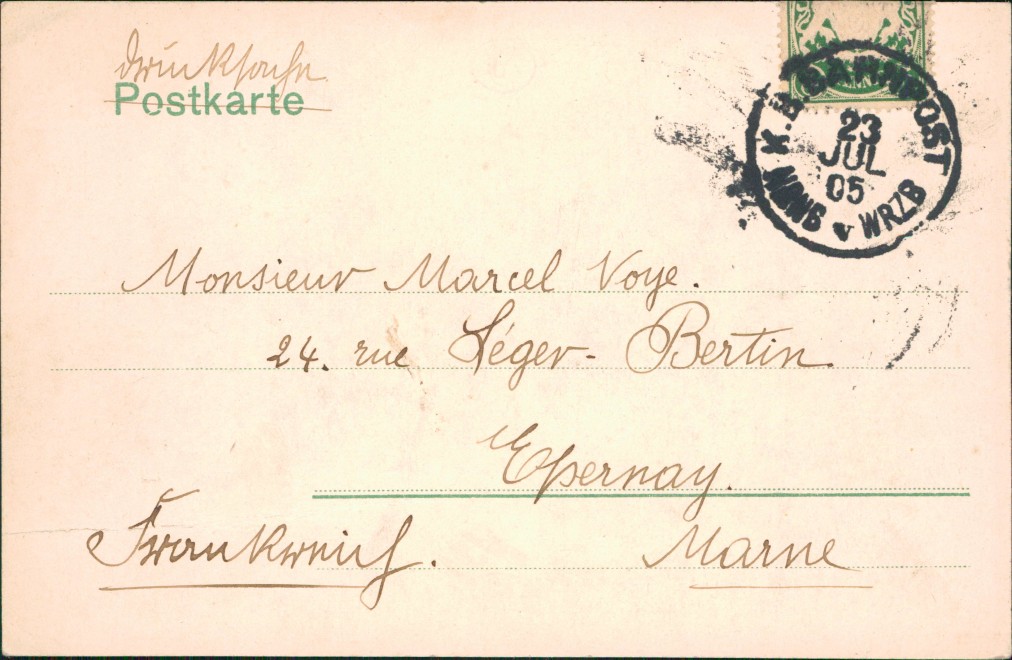 Drucksache
Postkarte
K.B. BAHNPOST
23
JUL
05
NBNG V WRZB
Monsieur Marcel Voye.
24. rue Léger-Bertin
Epernay.
Frankreich. Marne